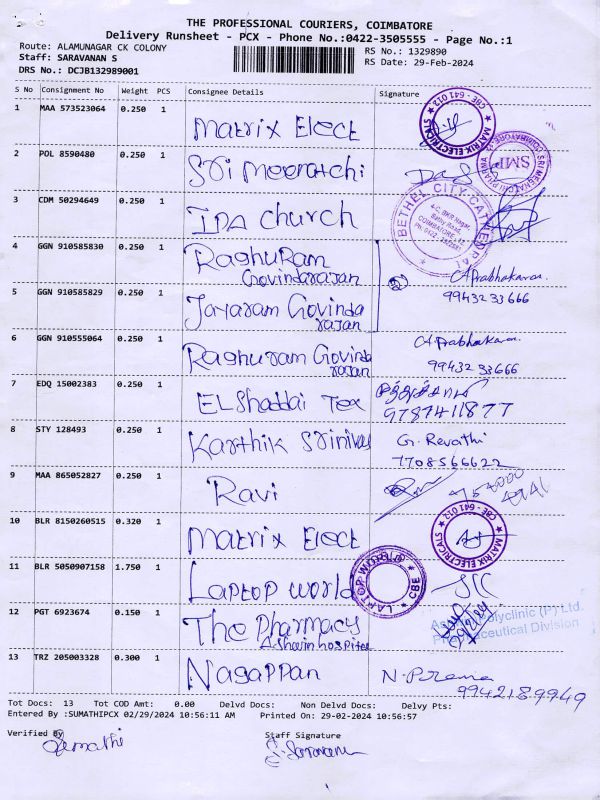 THE PROFESSIONAL COURIERS, COIMBATORE
Delivery Runsheet - PCX - Phone No.:0422-3505555 - Page No.:1
Route: ALAMUNAGAR CK COLONY
RS No.: 1329890
Staff: SARAVANAN S
RS Date: 29-Feb-2024
DRS No.: DCJB132989001
S No Consignment No Weight PCS Consignee Details Signature
1 MAA 573523064 0.250 1 Matrix Elect
★ MATRIX ELECTRICALS ★ CBE - 641 012
2 POL 8590480 0.250 1 Sri Meenatchi
SRI MEENAKSHI PHARMA COIMBATORE
SMP
3 CDM 50294649 0.250 1 IPA church
BETHEL CITY CATHEDRAL
4 GGN 910585830 0.250 1 Raghuram
Govindarajan
C A Prabhakaran
5 GGN 910585829 0.250 1 Jayaram Govinda
rajan
9943233666
6 GGN 910555064 0.250 1 Raghuram Govinda
rajan
C A Prabhakaran
9943233666
7 EDQ 15002383 0.250 1 ELShaddai Tex
9787411877
8 STY 128493 0.250 1 Karthik Srinivas G. Revathi
7708566622
9 MAA 865052827 0.250 1 Ravi
10 BLR 8150260515 0.320 1 Matrix Elect
★ MATRIX ELECTRICALS ★ CBE - 641 012
11 BLR 5050907158 1.750 1 Laptop World
LAPTOP WORLD CBE
12 PGT 6923674 0.150 1 The Pharmacy
Ashwin hospital
Polyclinic (P) Ltd.
Pharmaceutical Division
13 TRZ 205003328 0.300 1 Nagappan N. Prema
9942189949
Tot Docs: 13 Tot COD Amt: 0.00 Delvd Docs: Non Delvd Docs: Delvy Pts:
Entered By :SUMATHIPCX 02/29/2024 10:56:11 AM Printed On: 29-02-2024 10:56:57
Verified By Staff Signature
Sumathi S. Saravanan